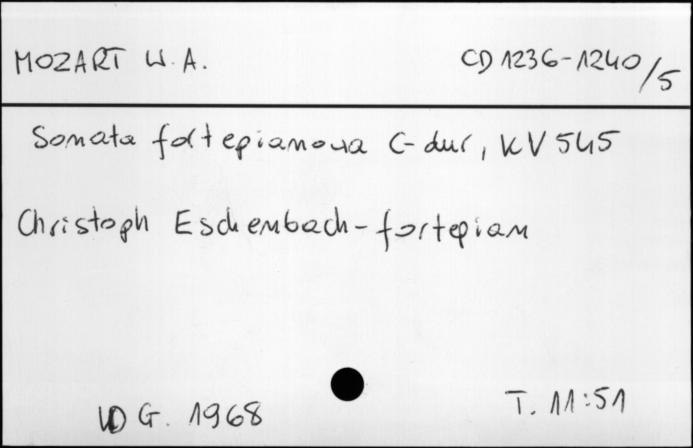 MOZART W. A. CD 1236-1240/5
Sonata fortepianowa C-dur, KV 545
Christoph Eschenbach - fortepian
G. 1968 T. 11:51